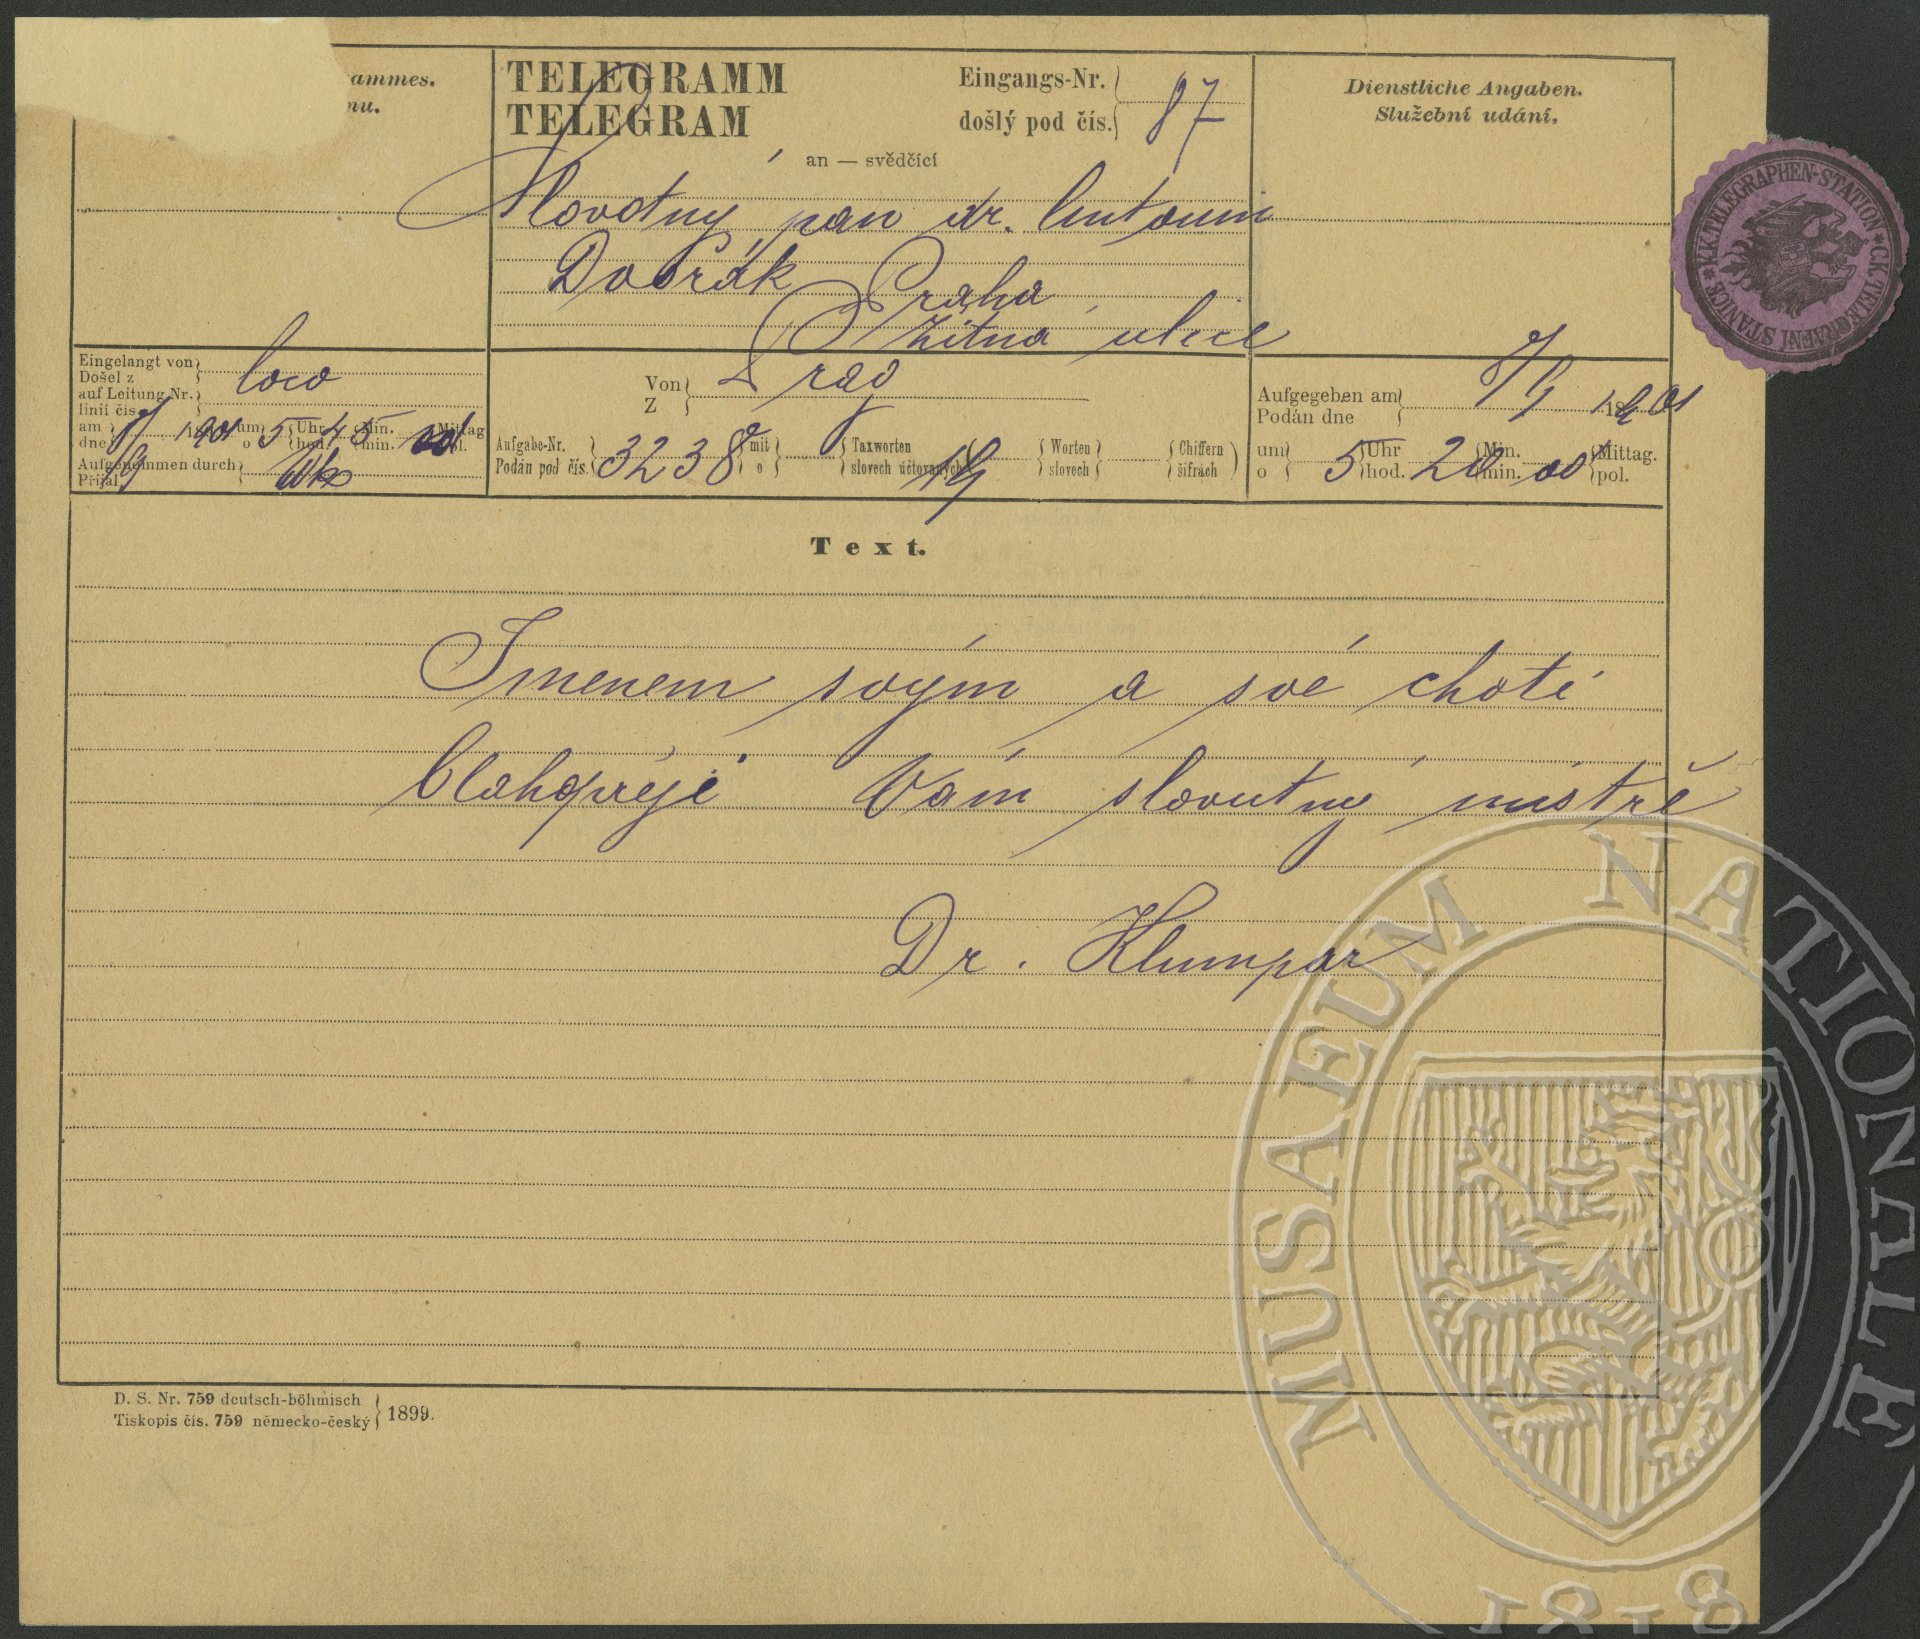 ammes.
nu.
TELEGRAMM
TELEGRAM
Eingangs-Nr.
došlý pod čís.
87
an — svědčící
Dienstliche Angaben.
Služební udání.
Slovutný pan dr. Antonin
Dvořák Praha
žitná ulice
Eingelangt von
Došel z
loco
auf Leitung Nr.
linii čís.
am
dne
um
o
5
Uhr
hod.
45
Min.
min.
Mittag
pol.
Aufgenommen durch
Přijal
Von
Z
Prag
Aufgabe-Nr.
Podán pod čís.
3238
mit
o
Taxworten
slovech účtovaných
Worten
slovech
Chiffern
šifrách
Aufgegeben am
Podán dne
um
o
5
Uhr
hod.
20
Min.
min.
Mittag.
pol.
Text.
Jmenem svým a své choti
blahopřeji Vám slovutný mistře
Dr. Klumpar
D. S. Nr. 759 deutsch-böhmisch
Tiskopis čís. 759 německo-český
1899.
K.K. TELEGRAPHEN-STATION * C.K. TELEGRAFNÍ STANICE *
MUSAEUM NATIONALE
1818